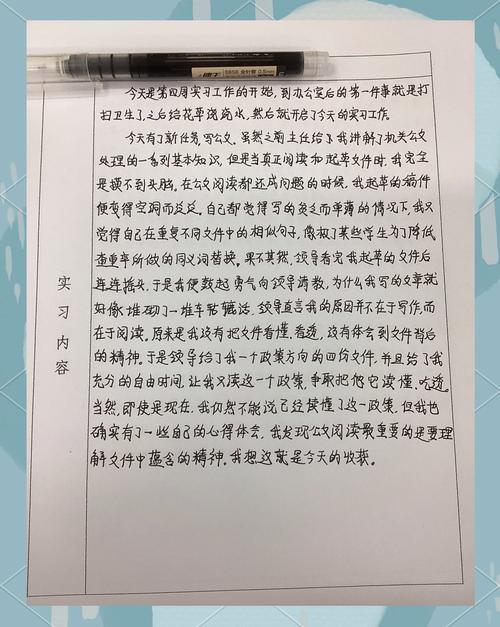 今天是第四周实习工作的开始,到办公室后的第一件事就是打
扫卫生了,之后给花草浇浇水,然后就开启了今天的实习工作。
今天有了新任务,写公文。虽然之前主任给了我讲解了机关公文
处理的一系列基本知识,但是当真正阅读和起草文件时,我完全
是摸不到头脑。在公文阅读都还成问题的时候,我起草的稿件
便变得空洞而泛泛。自己都觉得写的贫乏而单薄的情况下,我只
觉得自己在重复不同文件中的相似句子,像极了某些学生为了降低
查重率所做的同义词替换。果不其然,领导看完我起草的文件后
连连摇头,于是我便鼓起勇气向领导请教,为什么我写的文章就
好像堆砌了一堆车轱辘话,领导直言我的原因并不在于写作,而
在于阅读。原来是我没有把文件看懂、看透,没有体会到文件背后
的精神。于是领导给了我一个政策方向的四份文件,并且给了我
充分的自由时间,让我只读这一个政策,争取把它读懂、吃透。
当然,即使是现在,我仍然不能说已经读懂了这一政策,但我也
确实有了一些自己的心得体会,我发现公文阅读最重要的是要理
解文件中蕴含的精神。我想这就是今天的收获。
实习内容